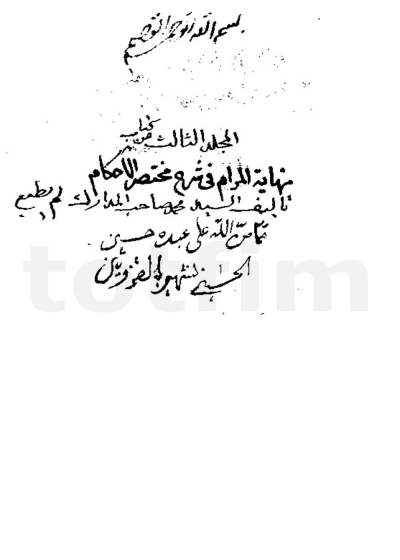 بسم الله الرحمن الرحيم
المجلد الثالث من كتاب
نهاية المرام في شرح مختصر الاحكام
تأليف السيد محمد صاحب المدارك لم يطبع
مما من الله على عبده حسين
الحسيني الشهير بالقزويني
totfim